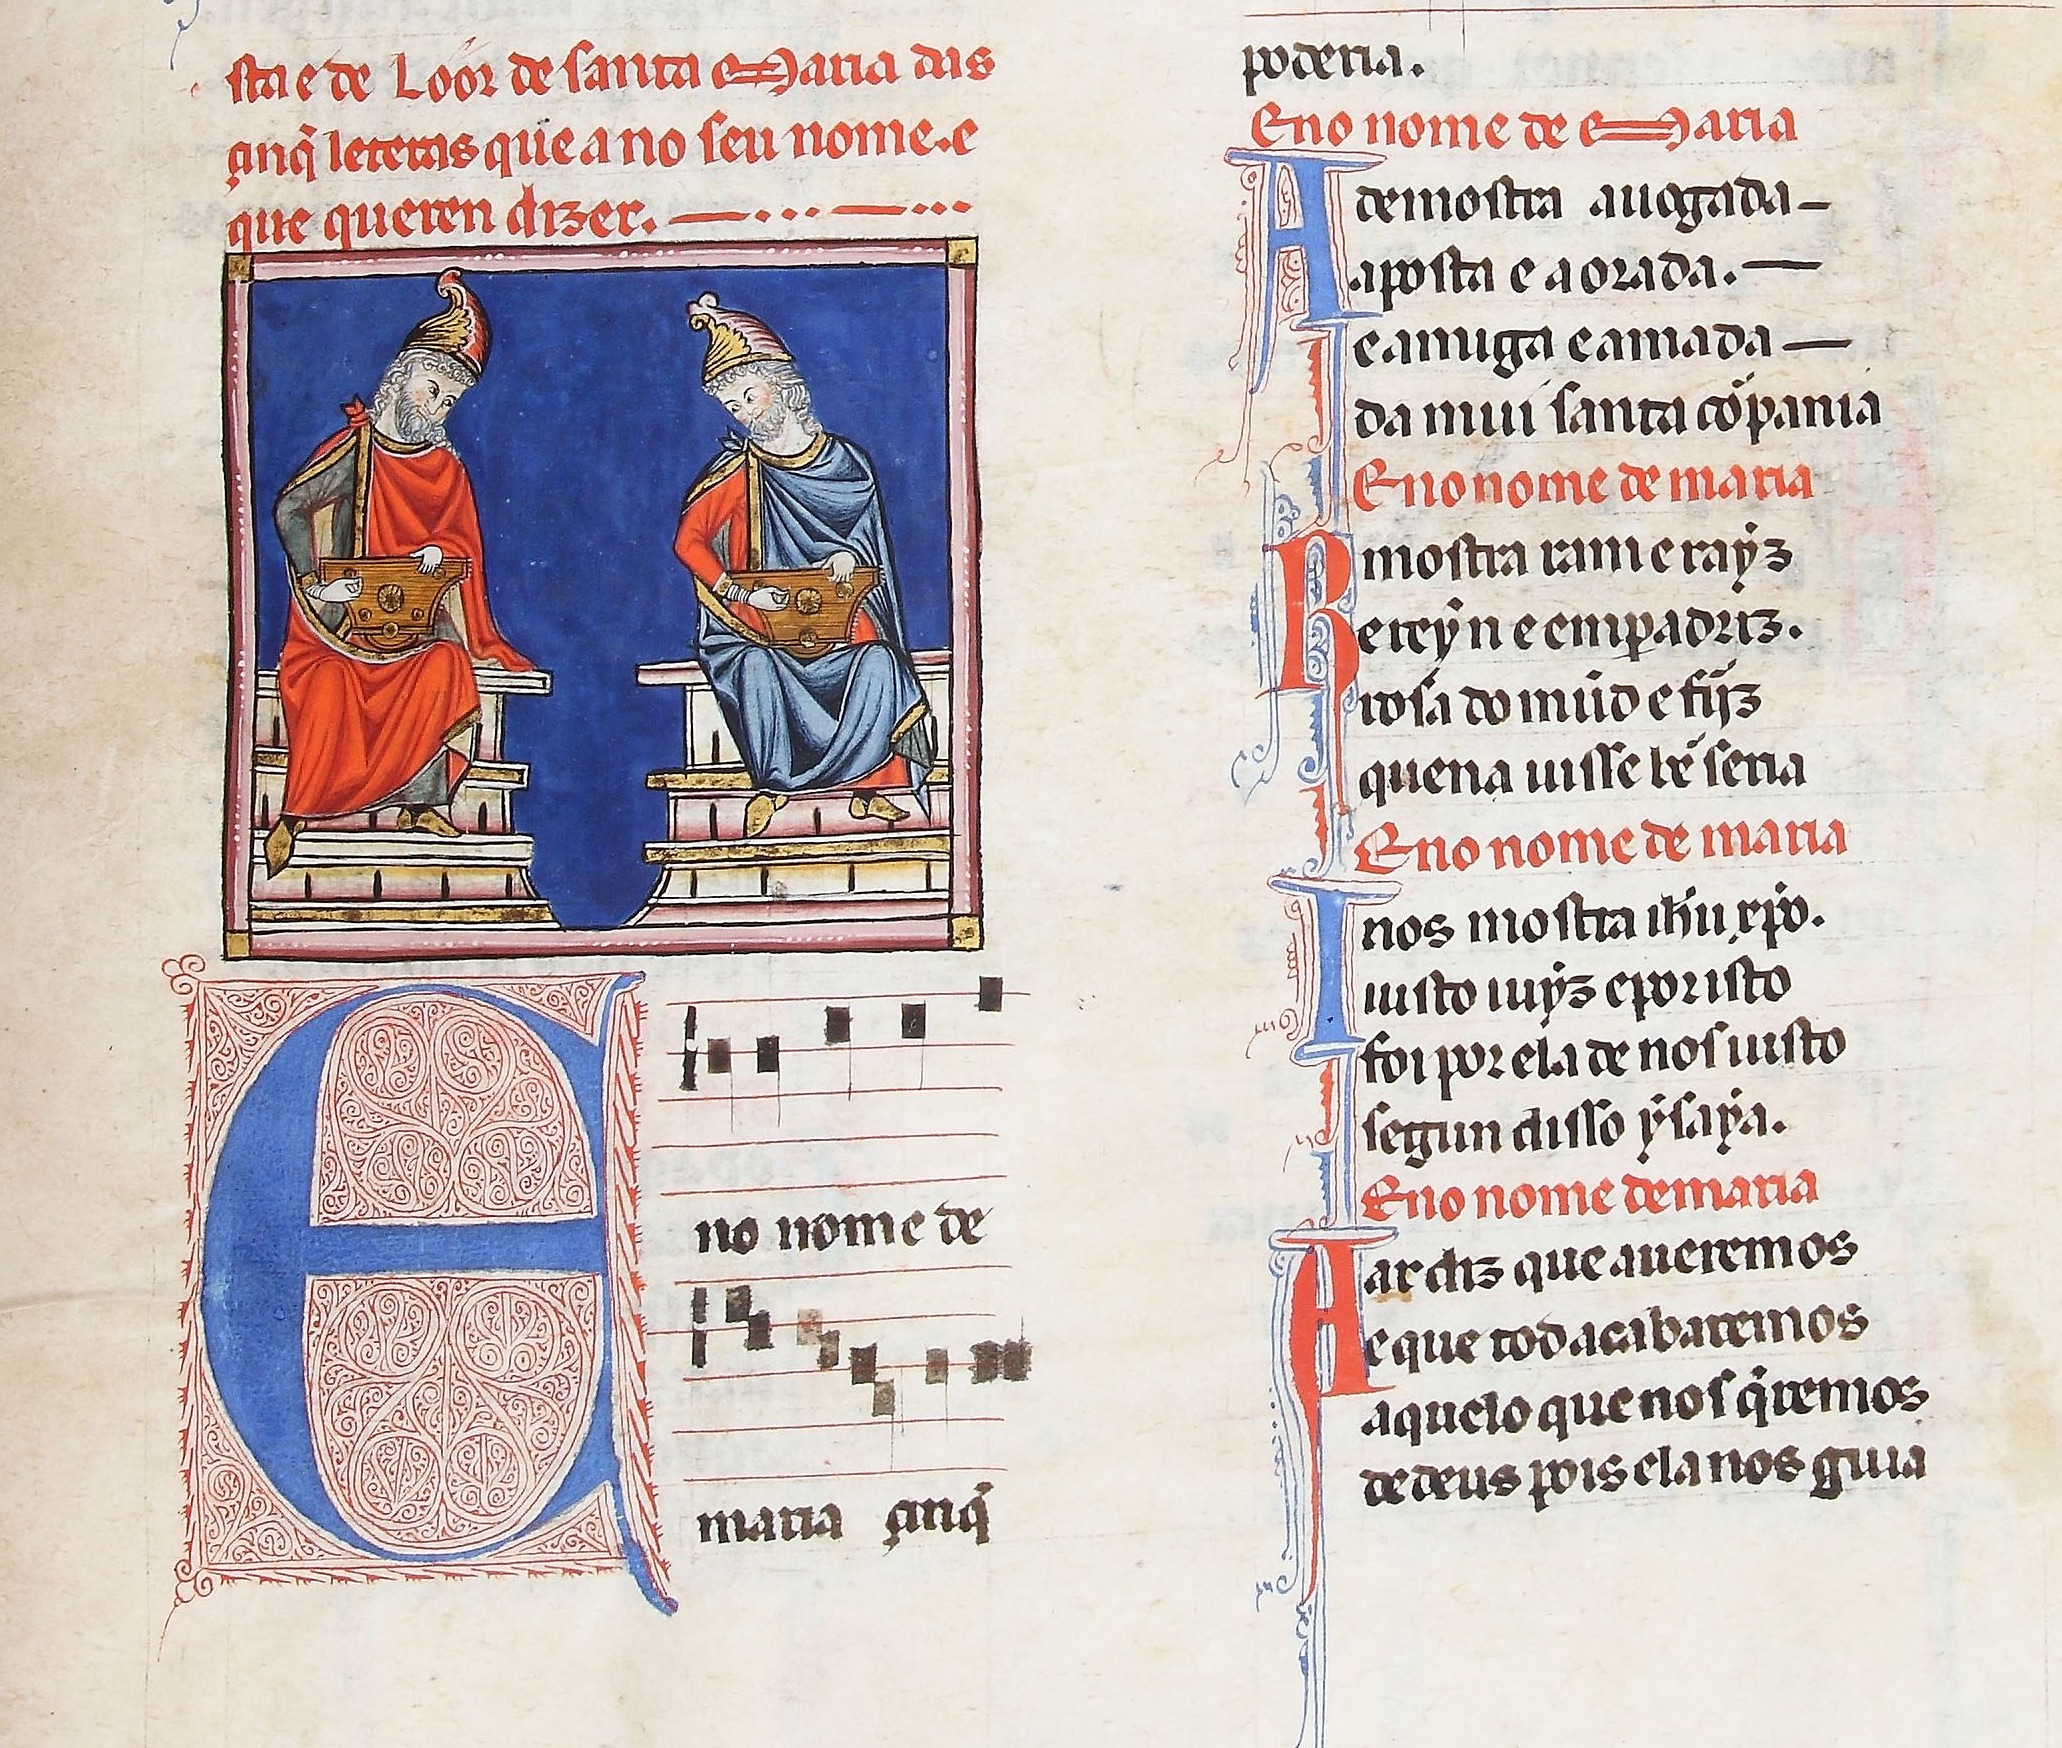 sta e de Loor de santa Maria das
çinq̃ leteras que a no seu nome. e
que queren dizer.
E
no nome de
maria çinq̃
poderia.
Eno nome de Maria
A demostra auogada
aposta e aorada.
e amiga e amada
da mui santa cõpania
Eno nome de maria
R mostra ram e raẏz
e reẏn e emperadriz.
rosa do mũdo e fijz
quena uisse bẽ seria
Eno nome de maria
I nos mostra ihũ xp̃o.
iusto iuẏz e por isto
foi por ela de nos uisto
segun disso ẏsaẏa.
Eno nome de maria
A ar diz que aueremos
e que tod acabaremos
aquelo que nos q̃remos
de deus pois ela nos guia